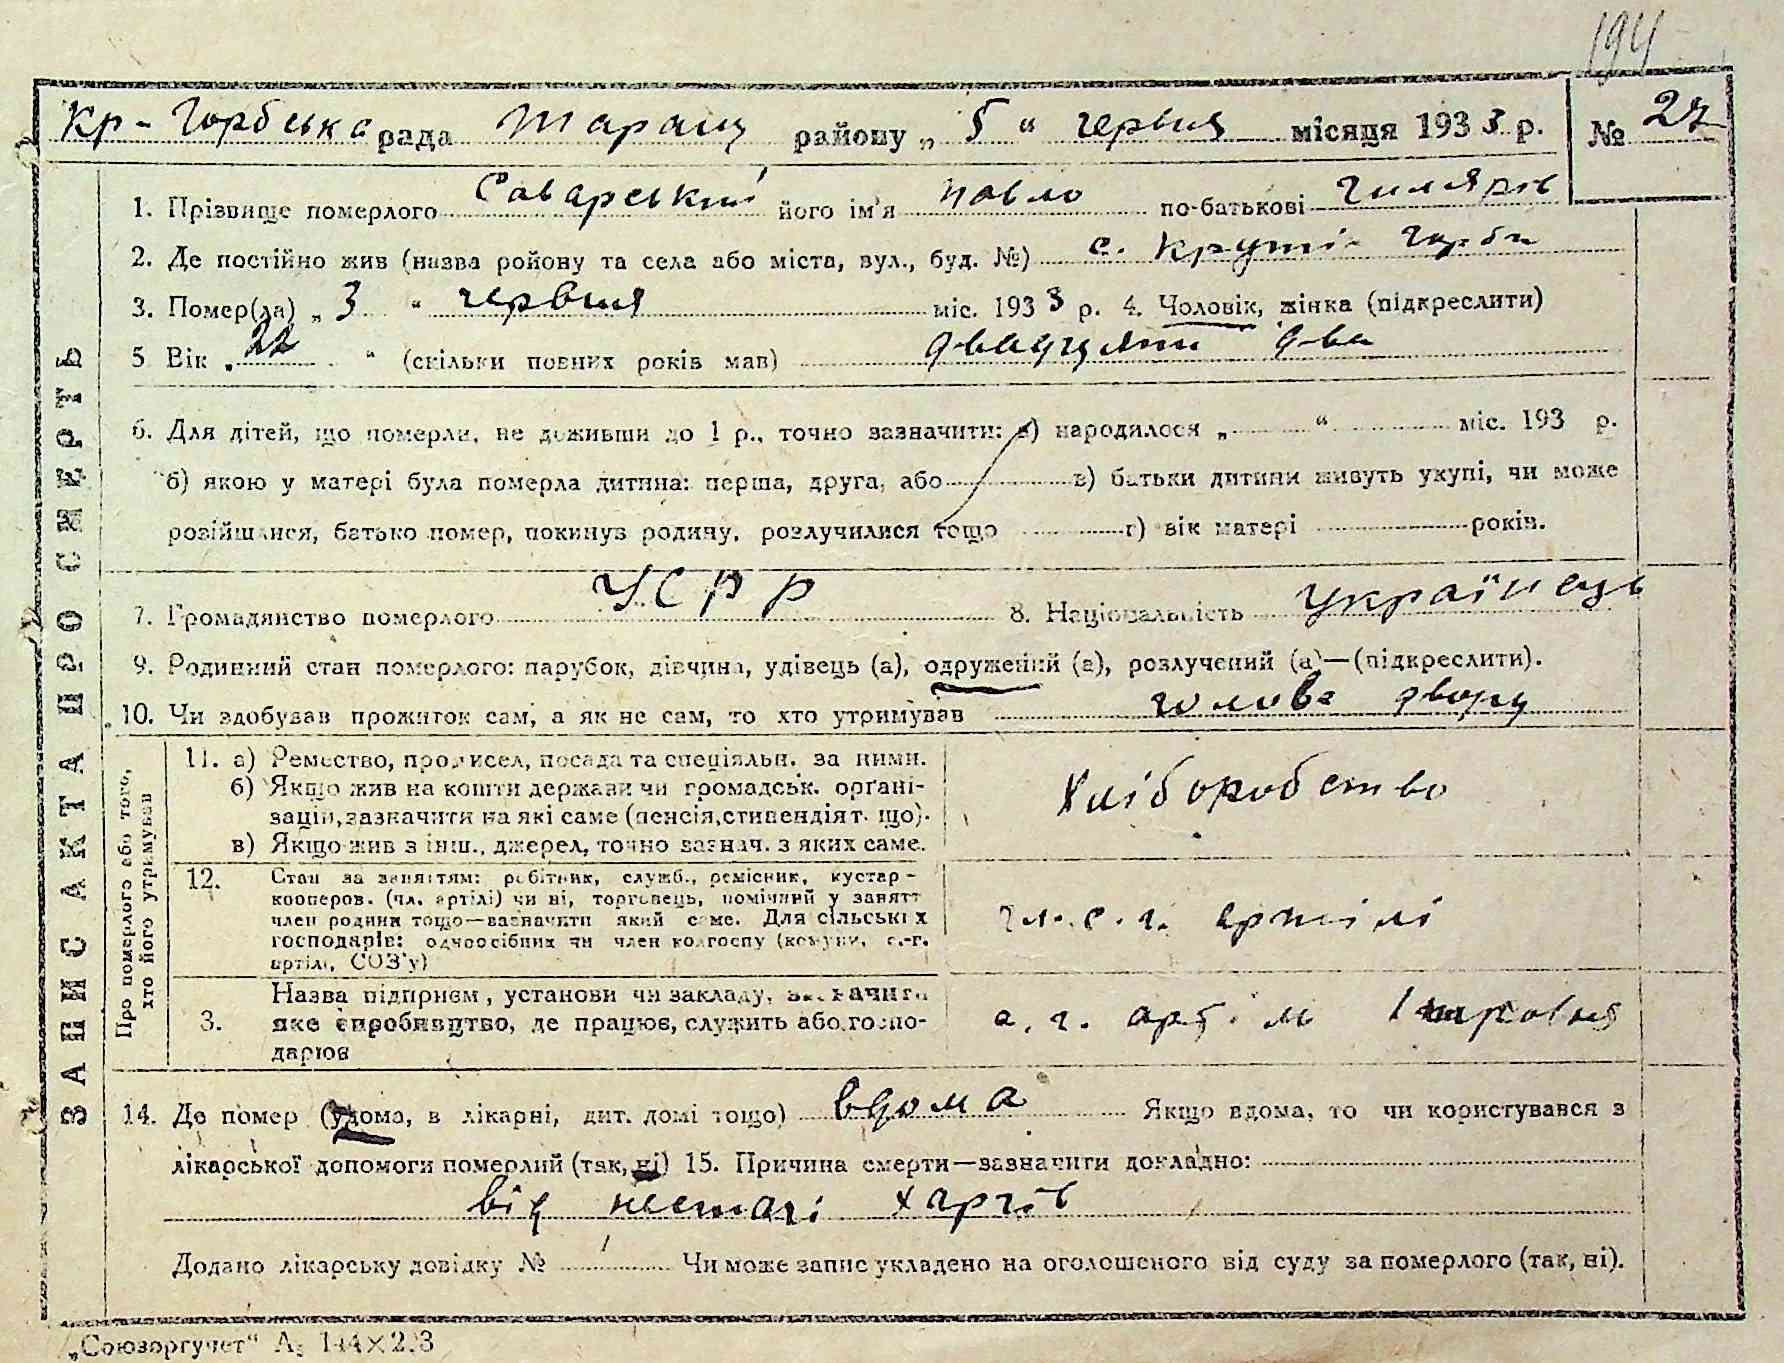 194
Кр-Горбська рада Таращ району „ 5 “ червня місяця 1933 р. № 27
1. Прізвище померлого Саварський його ім'я Павло по-батькові
2. Де постійно жив (назва ройону та села або міста, вул., буд. №) с. Круті-Горби
3. Помер(ла) „ 3 “ червня міс. 1933 р. 4. Чоловік, жінка (підкреслити)
5 Вік „ 22 “ (скільки повних років мав) двадцять два
6. Для дітей, що померли, не доживши до 1 р., точно зазначити: а) народилося „ “ міс. 193 р.
б) якою у матері була померла дитина: перша, друга, або в) батьки дитини живуть укупі, чи може
розійшлися, батько помер, покинув родину, розлучилися тощо г) вік матері років.
7. Громадянство померлого УСРР 8. Національність Українець
9. Родинний стан померлого: парубок, дівчина, удівець (а), одружений (а), розлучений (а)—(підкреслити).
10. Чи здобував прожиток сам, а як не сам, то хто утримував голова двору
ЗАПИС АКТА ПРО СМЕРТЬ
Про померлого або того,
хто його утримував
11. а) Ремество, промисел, посада та спеціяльн. за ними.
б) Якщо жив на кошти держави чи громадськ. органі-
зацій, зазначити на які саме (пенсія, стипендія т. що).
в) Якщо жив з інш., джерел, точно зазнач. з яких саме.
Хліборобство
12. Стан за заняттям: робітник, служб., ремісник, кустар-
кооперов. (чл. артілі) чи ні, торговець, помічний у занятт
член родини тощо—зазначити який саме. Для сільськіх
господарів: одноосібник чи член колгоспу (комуни, с.-г.
артілі, СОЗ'у)
чл. с. г. артілі
3. Назва підприєм, установи чи закладу, зазначити
яке виробництво, де працює, служить або госпо-
дарює
с. г. арт. ім
14. Де помер (удома, в лікарні, дит. домі тощо) вдома Якщо вдома, то чи користувався з
лікарської допомоги померлий (так, ні) 15. Причина смерти—зазначити докладно:
від нестачі харчів
Додано лікарську довідку № Чи може запис укладено на оголошеного від суду за померлого (так, ні).
„Союзоргучет“ А₅ 144×2.3